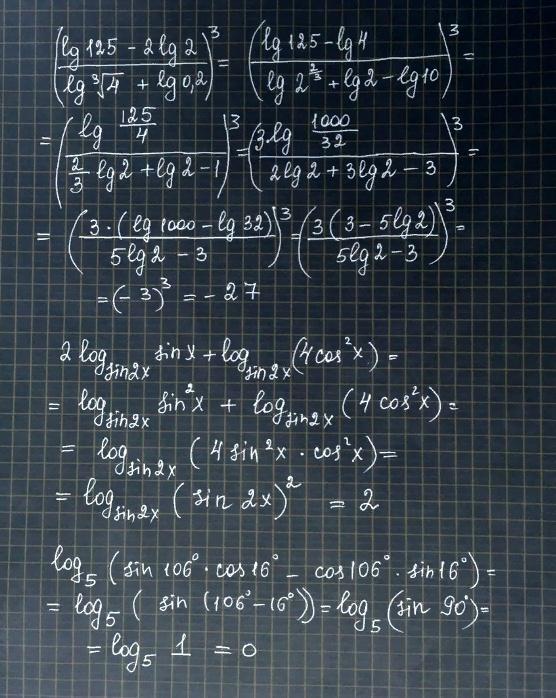 ((lg 125 - 2 lg 2)/(lg ∛4 + lg 0,2))³ = ((lg 125 - lg 4)/(lg 2^(2/3) + lg 2 - lg 10))³ =
= ((lg 125/4)/(2/3 lg 2 + lg 2 - 1))³ = ((3 lg 1000/32)/(2 lg 2 + 3 lg 2 - 3))³ =
= ((3 · (lg 1000 - lg 32))/(5 lg 2 - 3))³ = ((3 (3 - 5 lg 2))/(5 lg 2 - 3))³ =
= (-3)³ = - 27
2 log_sin2x sin x + log_sin2x (4 cos²x) =
= log_sin2x sin²x + log_sin2x (4 cos²x) =
= log_sin2x (4 sin²x · cos²x) =
= log_sin2x (sin 2x)² = 2
log₅ (sin 106° · cos 16° - cos 106° · sin 16°) =
= log₅ (sin (106° - 16°)) = log₅ (sin 90°) =
= log₅ 1 = 0